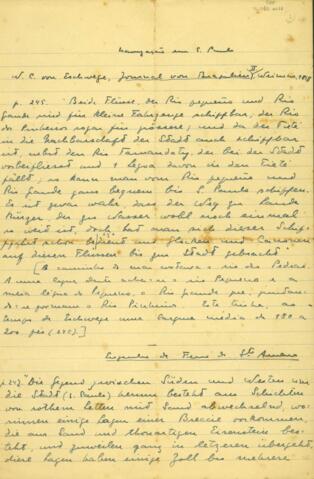 Navegação em S. Paulo
W. C. von Eschwege, Journal von Brasilien II, Weimar, 1818
p. 245. "Beide Flüsse, der Rio pequeno und Rio
Grande sind für kleine Fahrzeuge schiffbar, der Rio
do Pinheiros sogar für grössere; und da der Tieté
in die Nachbarschaft der Stadt auch schiffbar
ist, nebst dem Rio Tamandatiy, der bei der Stadt
vorbeifliesst und 1 legoa davon in den Tieté
fällt, so kann man vom Rio pequeno und
Rio Grande ganz bequem bis S. Paulo schiffen.
Es ist zwar wahr, dass der Weg zu Lande
kürzer, der zu Wasser wohl noch einmal
so weit ist, doch hat man sich dieser Schif-
fahrt schon bedient und Glocken und Canonen
auf diesen Flüssen bis zur Stadt gebracht".
[O caminho do mar costeava o rio das Pedras.
A uma legua deste achava-se o rio Pequeno e a
meia legua do Pequeno o Rio Grande que, juntando-
se formam o Rio Pinheiros. Este tinha, ao
tempo de Eschwege uma largura média de 180 a
200 pés (245).]
Engenho de Ferro de Sto Amaro
p. 247. "Die Gegend zwischen Süden und Westen um
die Stadt (S. Paulo) herum besteht aus Schichten
von rothem Letten mit Sand abwechselnd, wo-
rinnen einige Lagen einer Breccie vorkommen,
die aus Sand und thonartigen Eisenstein bes-
teht, und zuweilen ganz in letzteren übergeht,
diese Lagen haben einige Zoll bis mehrere